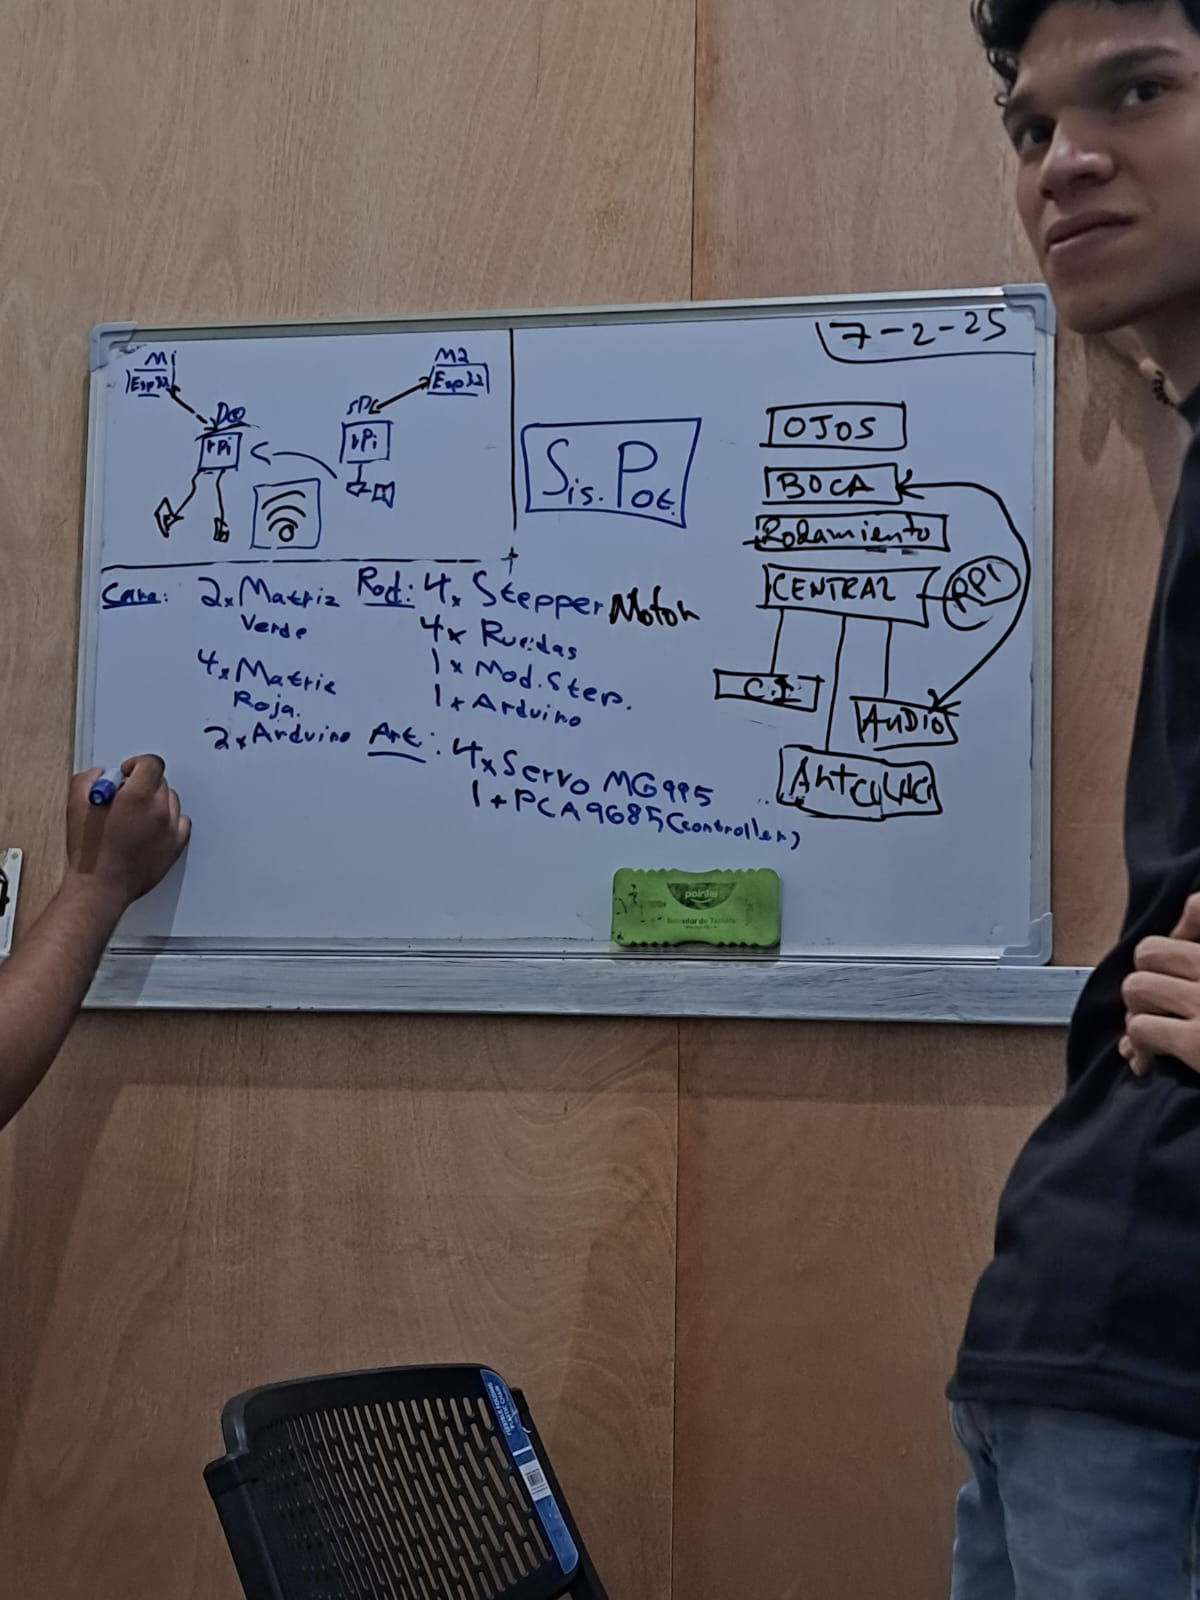 7-2-25
M1
Esp32
M2
Esp32
rPi
rPi
Sis. Pot.
OJOS
BOCA
Rodamiento
CENTRAL
RPI
C.I
AUDIO
Cara:
2x Matriz
Verde
4x Matriz
Roja.
2x Arduino
Rod: 4x Stepper Motor
4x Ruedas
1x Mod. Step.
1x Arduino
Art: 4x Servo MG995
1x PCA9685 (controller)
pointer
Borrador de Pizarra